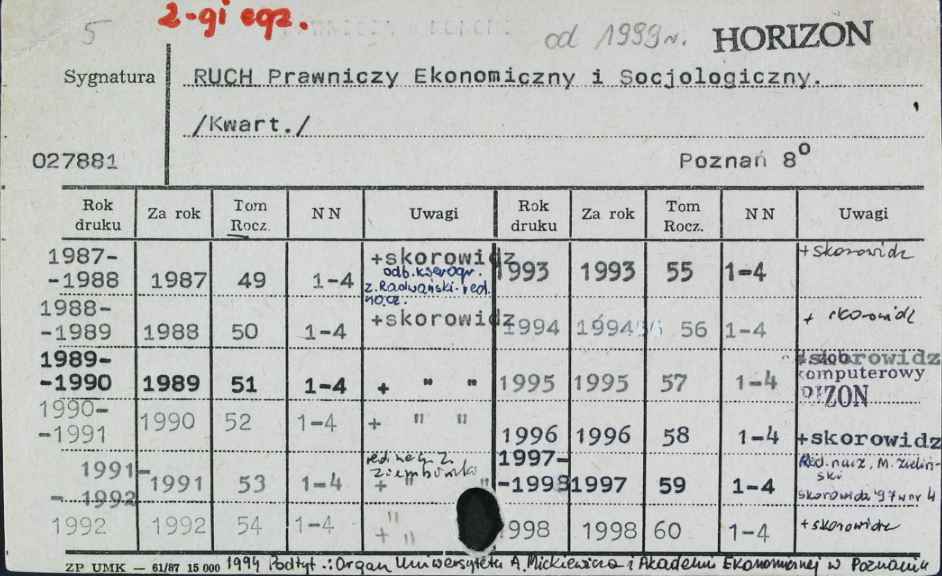 5 2-gi egz. od 1999r. HORIZON
Sygnatura RUCH Prawniczy Ekonomiczny i Socjologiczny.
/Kwart./
027881 Poznań 8°
Rok druku Za rok Tom Rocz. NN Uwagi Rok druku Za rok Tom Rocz. NN Uwagi
1987-
-1988 1987 49 1-4 +skorowidz
odb. kserogr.
z. Radwański - red.
nacz.
1993 1993 55 1-4 +skorowidz
1988-
-1989 1988 50 1-4 +skorowidz
1994 1994 56 1-4 + skorowidz
1989-
-1990 1989 51 1-4 + " "
1995 1995 57 1-4 +skorowidz
komputerowy
1990-
-1991 1990 52 1-4 + " "
1996 1996 58 1-4 +skorowidz
1991-
-1992 1991 53 1-4 red. nacz. Z.
Ziembiński
+ " "
1997-
-1998 1997 59 1-4 Red. nacz. M. Zieliń-
ski
skorowidz '97 w nr 4
1992 1992 54 1-4 + " "
1998 1998 60 1-4 +skorowidz
ZP UMK — 61/87 15 000 1994 Podtyt.: Organ Uniwersytetu A. Mickiewicza i Akademii Ekonomicznej w Poznaniu